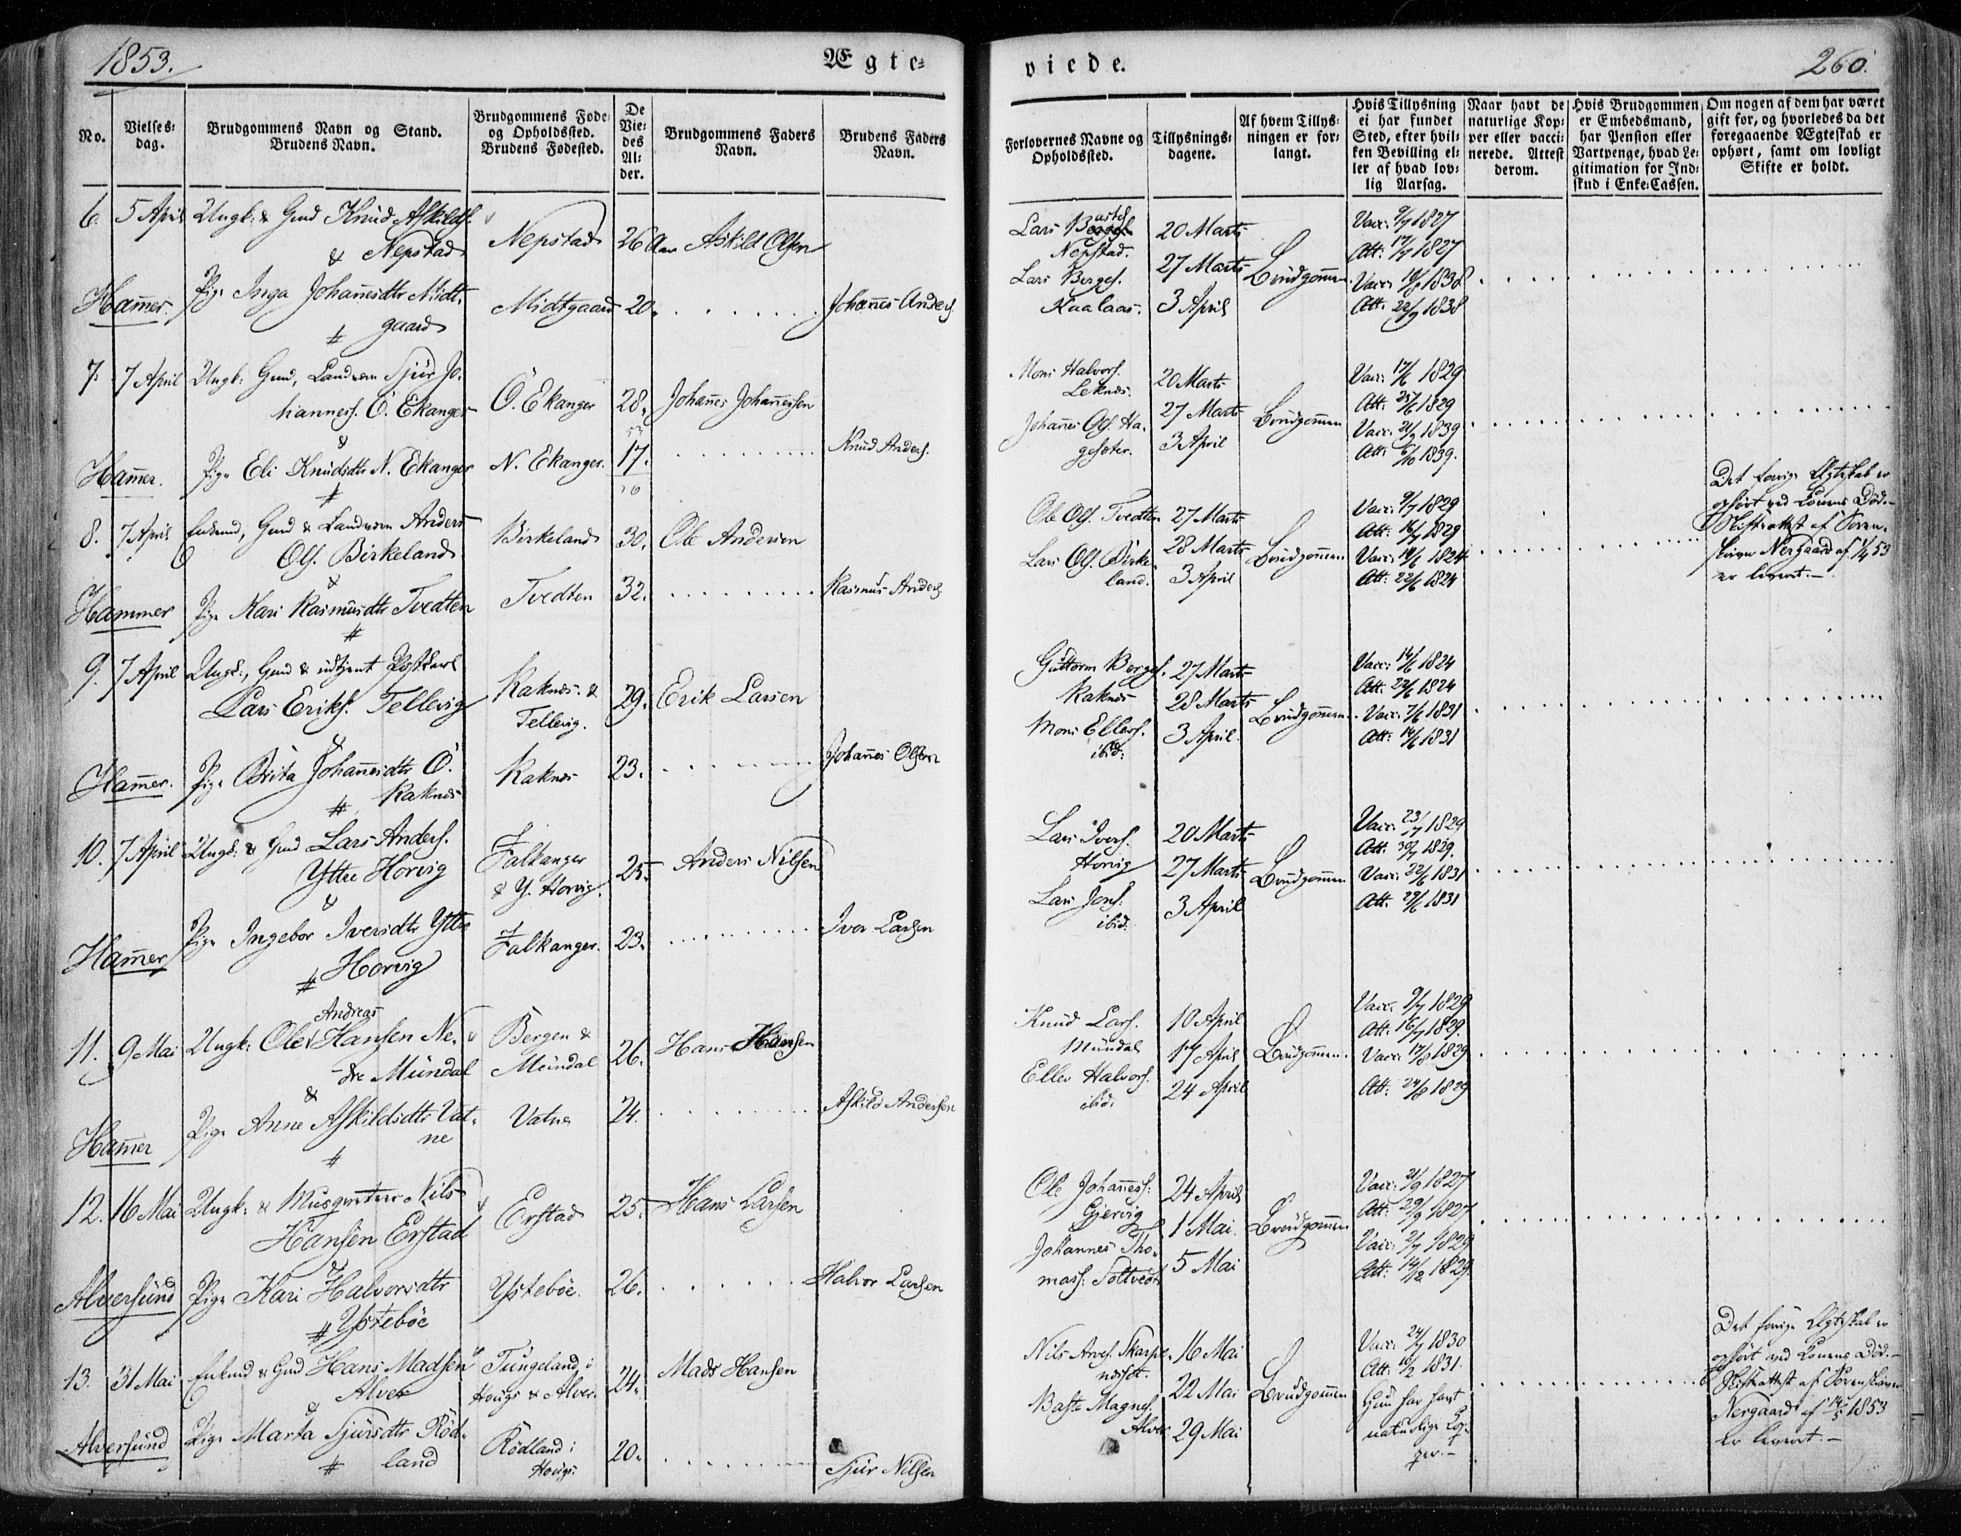 1853.
Ægte-
viede.
260.
No.
Vielses-
dag.
Brudgommens Navn og Stand.
Brudens Navn.
Brudgommens Føde-
og Opholdssted.
Brudens Fødested.
De
Vie-
des
Al-
der.
Brudgommens Faders
Navn.
Brudens Faders
Navn.
Forlovernes Navne og
Opholdssted.
Tillysnings-
dagene.
Af hvem Tillys-
ningen er for-
langt.
Hvis Tillysning
ei har fundet
Sted, efter hvil-
ken Bevilling el-
ler af hvad lov-
lig Aarsag.
Naar havt de
naturlige Kop-
per eller vacci-
nerede. Attest
derom.
Hvis Brudgommen
er Embedsmand,
har Pension eller
Vartpenge, hvad Le-
gitimation for Ind-
skud i Enke-Cassen.
Om nogen af dem har været
gift før, og hvorledes da det
foregaaende Ægteskab er
ophørt, samt om lovligt
Skifte er holdt.
6. 5 April Ungk: & Gmd Knud Askilds.
& Nepstad
Nepstad 26 Aar Askild Olsen
Hamer. Pige Inga Johannesdtr Midt-
gaard
Midtgaard 20. Johannes Anders.
Lars
Nepstad.
Lars Berges.
Kaalaas.
20 Marts
27 Marts
3 April
Brudgommen
Vacc: 9/7 1827
Att: 17/7 1827
Vacc: 1838
Att: 1838
7. 7 April Ungk: Gmd, Landvern Sjur Jo-
hanness. Ö. Ekanger
&
Ö. Ekanger 28. Johanes Johannesen
Hamer. Pige Eli Knudsdtr N. Ekanger N. Ekanger. 17. Knud Anders.
Mons Halvors.
Leknes.
Johanes Ols. Ha-
gesæter.
20 Marts
27 Marts
3 April
Brudgommen
Vacc: 17/6 1829
Att: 25/6 1829
Vacc: 1839
Att: 6/10 1839.
8. 7 April Enkemd, Gmd & Landvern Anders
Ols. Birkeland
&
Birkeland 30. Ole Andersen
Hammer Pige Kari Rasmusdtr Tvedten Tvedten 32. Rasmus Anders.
Ole Ols. Tvedten
Lars Ols. Birke-
land.
27 Marts
28 Marts
3 April
Brudgommen
Vacc: 9/7 1829
Att: 16/7 1829
Vacc: 14/6 1824
Att: 22/6 1824
Det forrige Ægteskab er
ophørt ved Konens Død.
Skifteattest af Soren-
skriver Nergaard af 53
er leveret.
9. 7 April Ungk:, Gmd & udtjent
Lars Eriks. Tellevig
&
Raknes &
Tellevig.
29. Erik Larsen
Hamer. Pige Brita Johannesdtr Ö.
Raknes
Raknes 23. Johannes Olsen
Guttorm Berges.
Raknes
Mons Ellers.
ibid:
27 Marts
28 Marts
3 April.
Brudgommen.
Vacc: 14/6 1824
Att: 22/6 1824
Vacc: 7/6 1831
Att: 14/6 1831
10. 7 April Ungk: & Gmd Lars Anders.
Yttre Horvig
&
Falkanger
& Y. Horvig.
25. Anders Nilsen
Hamer Pige Ingebor Iversdtr Yttre
Horvig
Falkanger. 23. Iver Larsen
Lars Ivers.
Horvig
Lars Jons.
ibid.
20 Marts
27 Marts
3 April
Brudgommen
Vacc: 23/7 1829
Att: 30/7 1829.
Vacc: 22/6 1831
Att: 29/6 1831
Andreas
11. 9 Mai Ungk: Ole Hansen Ne-
dre Mundal
&
Bergen &
Mundal
26. Hans Hansen
Hamer Pige Anne Askildsdtr Vat-
ne
Vatne 24. Askild Andersen
Knud Lars.
Mundal
Eller Halvors.
ibid.
10 April
17 April
24 April
Brudgommen.
Vacc: 9/7 1829
Att: 16/7 1829.
Vacc: 17/8 1829
Att: 24/8 1829
12. 16 Mai Ungk: & Musqueteer Nils
Hansen Erstad
&
Erstad 25. Hans Larsen
Alversund Pige Kari Halvorsdtr
Ystebøe
Ystebøe. 26. Halvor Larsen
Ole Johanness:
Gjervig
Johannes Tho-
mass. Soltvedt
24 April
1 Mai.
5 Mai
Brudgommen
Vacc: 21/9 1827
Att: 29/9 1827
Vacc: 1829
Att: 1829.
13. 31 Mai Enkemd & Gmd Hans Madsen
Alver
&
Tungeland i
Hougs & Alver.
24. Mads Hansen
Alversund Pige Marta Sjursdtr Röd-
land
Rödland i
Hougs.
20. Sjur Nilsen
Nils Arves. Skarpe-
næset.
Baste Magnes.
Alver
16 Mai
22 Mai
29 Mai
Brudgommen
Vacc: 24/7 1830
Att: 1831.
Hun har havt
naturlige Kop-
per.
Det forrige Ægteskab er
ophørt ved Konens Død.
Skifteattest af Sorenskriver
Nergaard af 1853
er leveret.